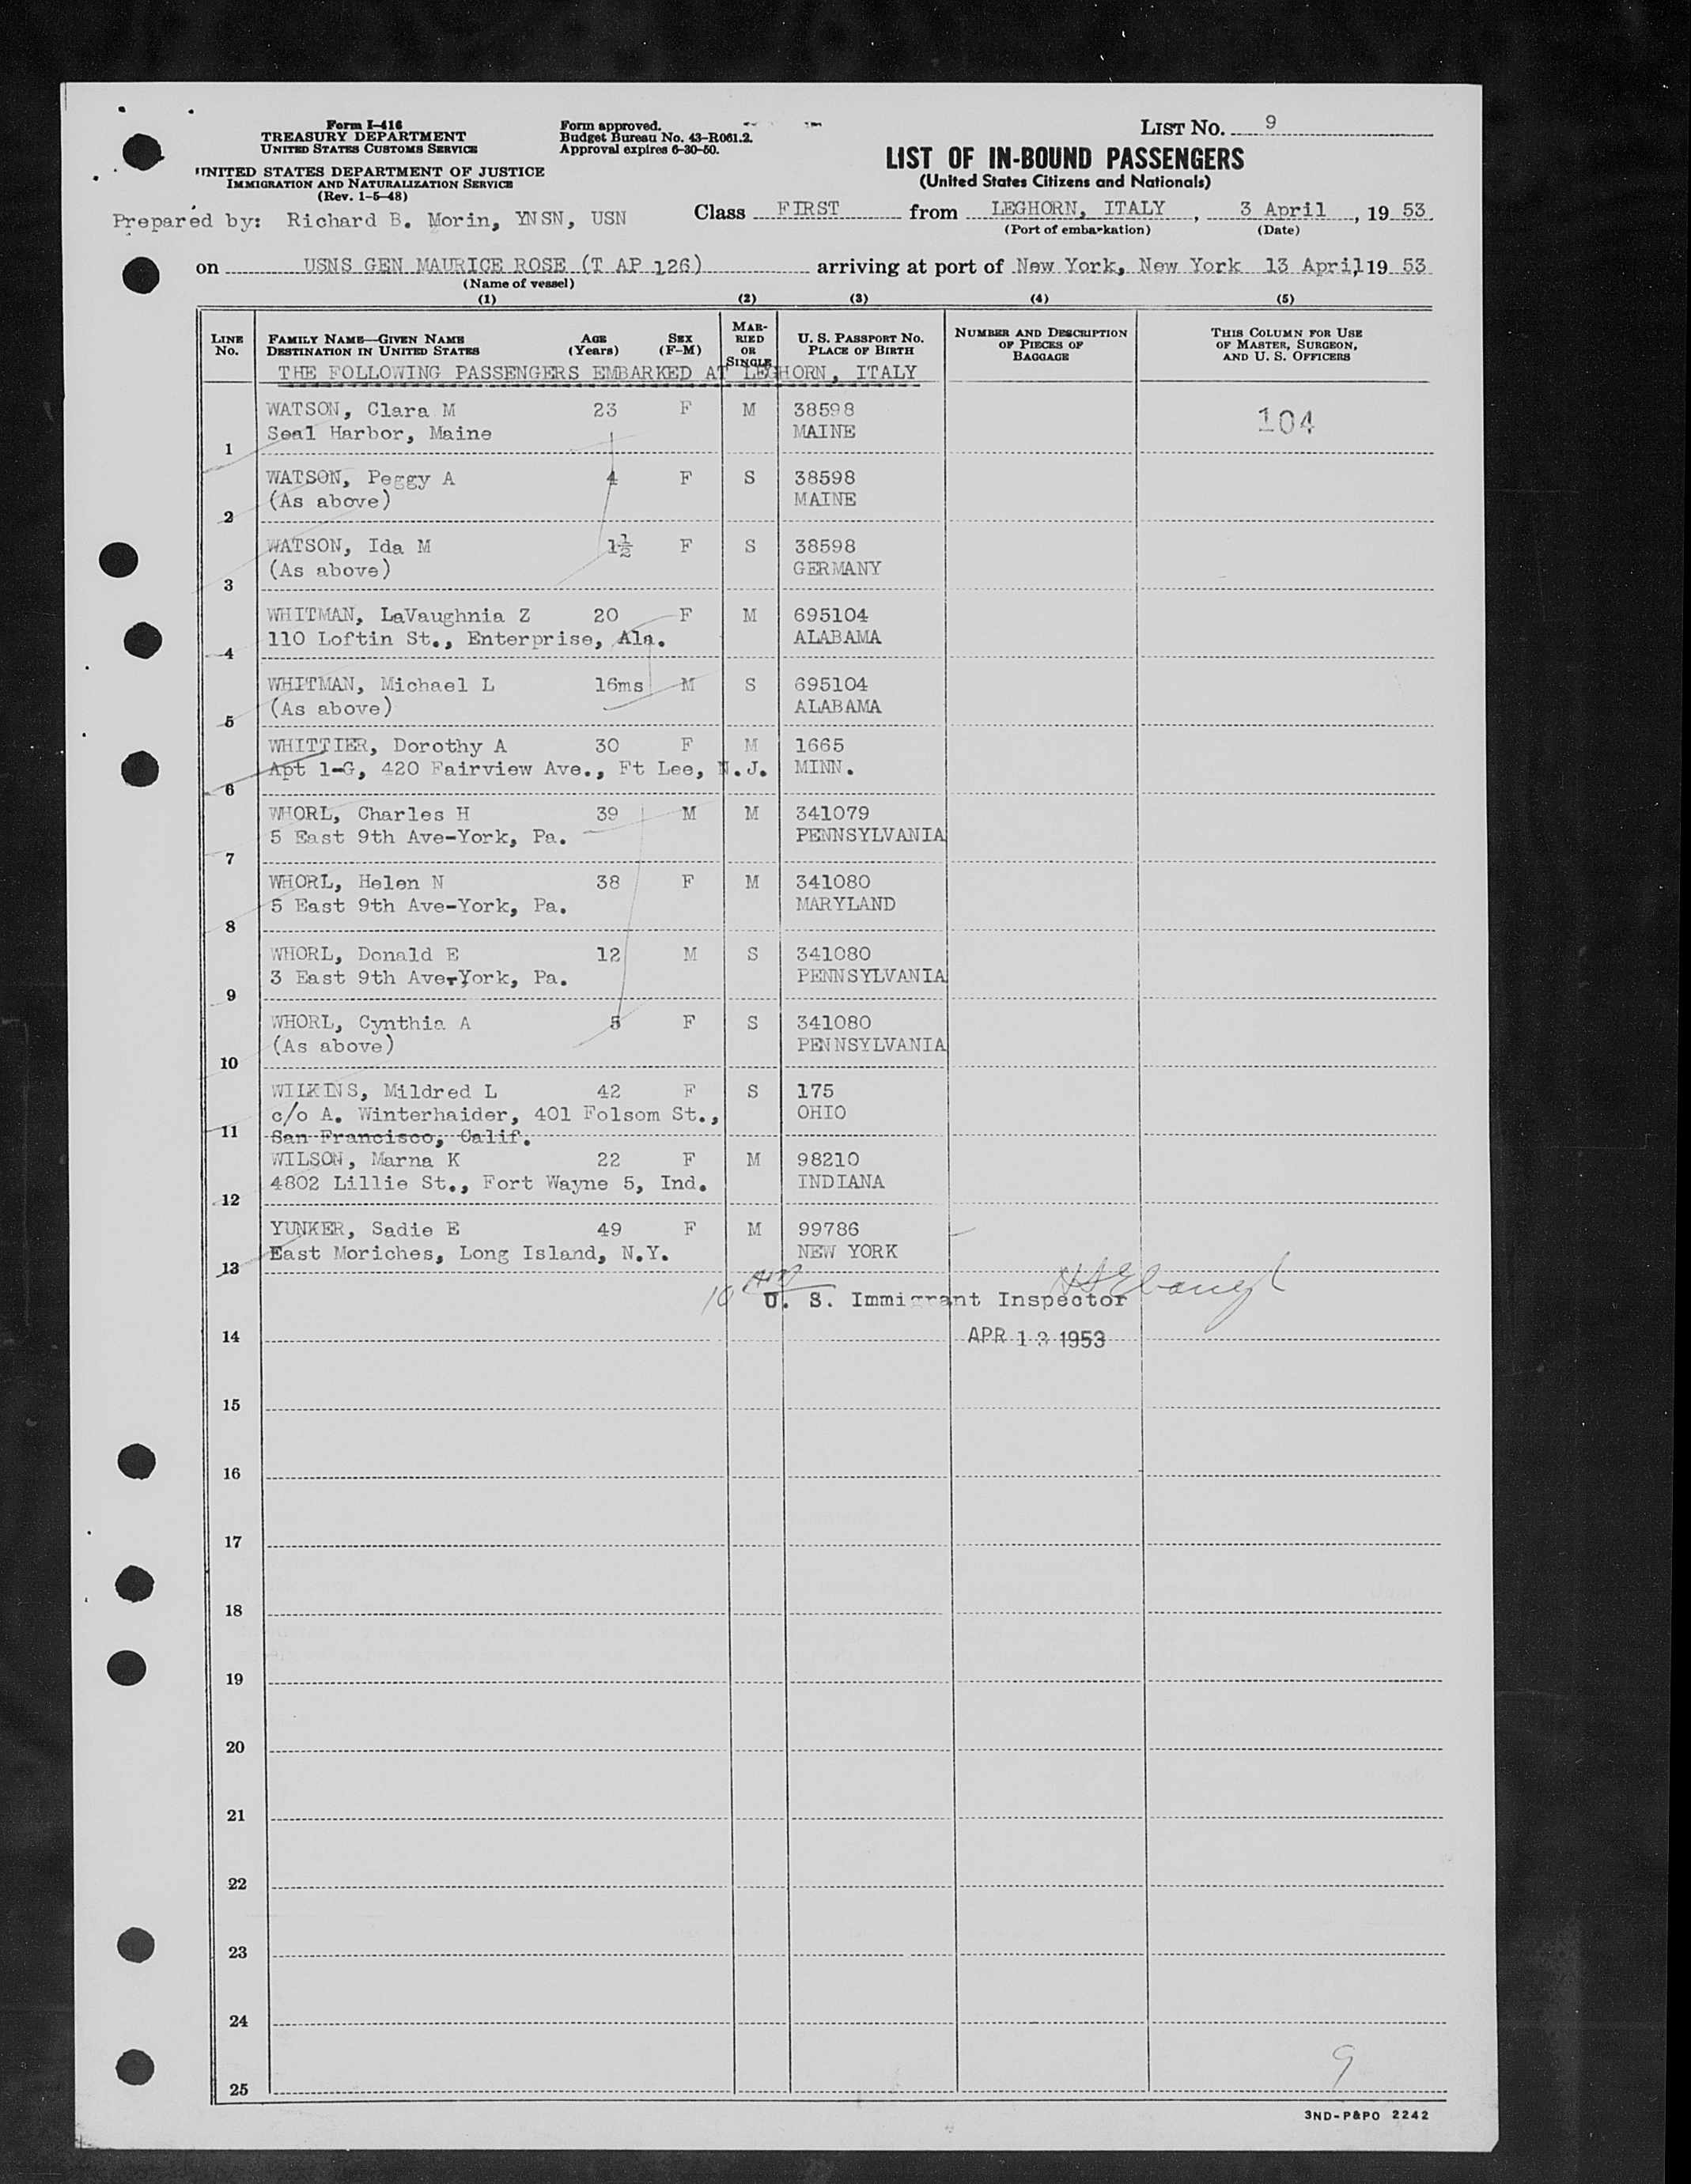 Form I-416
TREASURY DEPARTMENT
UNITED STATES CUSTOMS SERVICE
UNITED STATES DEPARTMENT OF JUSTICE
IMMIGRATION AND NATURALIZATION SERVICE
(Rev. 1-5-48)
Form approved.
Budget Bureau No. 43-R061.2.
Approval expires 6-30-50.
LIST No. 9
LIST OF IN-BOUND PASSENGERS
(United States Citizens and Nationals)
Prepared by: Richard B. Morin, YNSN, USN
Class FIRST from LEGHORN, ITALY, 3 April, 19 53
(Port of embarkation) (Date)
on USNS GEN MAURICE ROSE (T AP 126) arriving at port of New York, New York 13 April, 19 53
(Name of vessel)
(1) (2) (3) (4) (5)
LINE No. FAMILY NAME—GIVEN NAME DESTINATION IN UNITED STATES AGE (Years) SEX (F-M) MARRIED OR SINGLE U. S. PASSPORT No. PLACE OF BIRTH NUMBER AND DESCRIPTION OF PIECES OF BAGGAGE THIS COLUMN FOR USE OF MASTER, SURGEON, AND U. S. OFFICERS
THE FOLLOWING PASSENGERS EMBARKED AT LEGHORN, ITALY
WATSON, Clara M 23 F M 38598 104
Seal Harbor, Maine MAINE
1
WATSON, Peggy A 4 F S 38598
(As above) MAINE
2
WATSON, Ida M 1½ F S 38598
(As above) GERMANY
3
WHITMAN, LaVaughnia Z 20 F M 695104
110 Loftin St., Enterprise, Ala. ALABAMA
4
WHITMAN, Michael L 16ms M S 695104
(As above) ALABAMA
5
WHITTIER, Dorothy A 30 F M 1665
Apt 1-G, 420 Fairview Ave., Ft Lee, N.J. MINN.
6
WHORL, Charles H 39 M M 341079
5 East 9th Ave-York, Pa. PENNSYLVANIA
7
WHORL, Helen N 38 F M 341080
5 East 9th Ave-York, Pa. MARYLAND
8
WHORL, Donald E 12 M S 341080
3 East 9th Ave-York, Pa. PENNSYLVANIA
9
WHORL, Cynthia A 5 F S 341080
(As above) PENNSYLVANIA
10
WILKINS, Mildred L 42 F S 175
c/o A. Winterhaider, 401 Folsom St., OHIO
11 San Francisco, Calif.
WILSON, Marna K 22 F M 98210
4802 Lillie St., Fort Wayne 5, Ind. INDIANA
12
YUNKER, Sadie E 49 F M 99786
East Moriches, Long Island, N.Y. NEW YORK
13
U. S. Immigrant Inspector
14 APR 13 1953
15
16
17
18
19
20
21
22
23
24
9
25
3ND-P&PO 2242